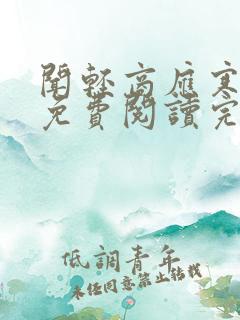 聞輕高應寒
免費閱讀完
低調青年
未經同意禁止轉載